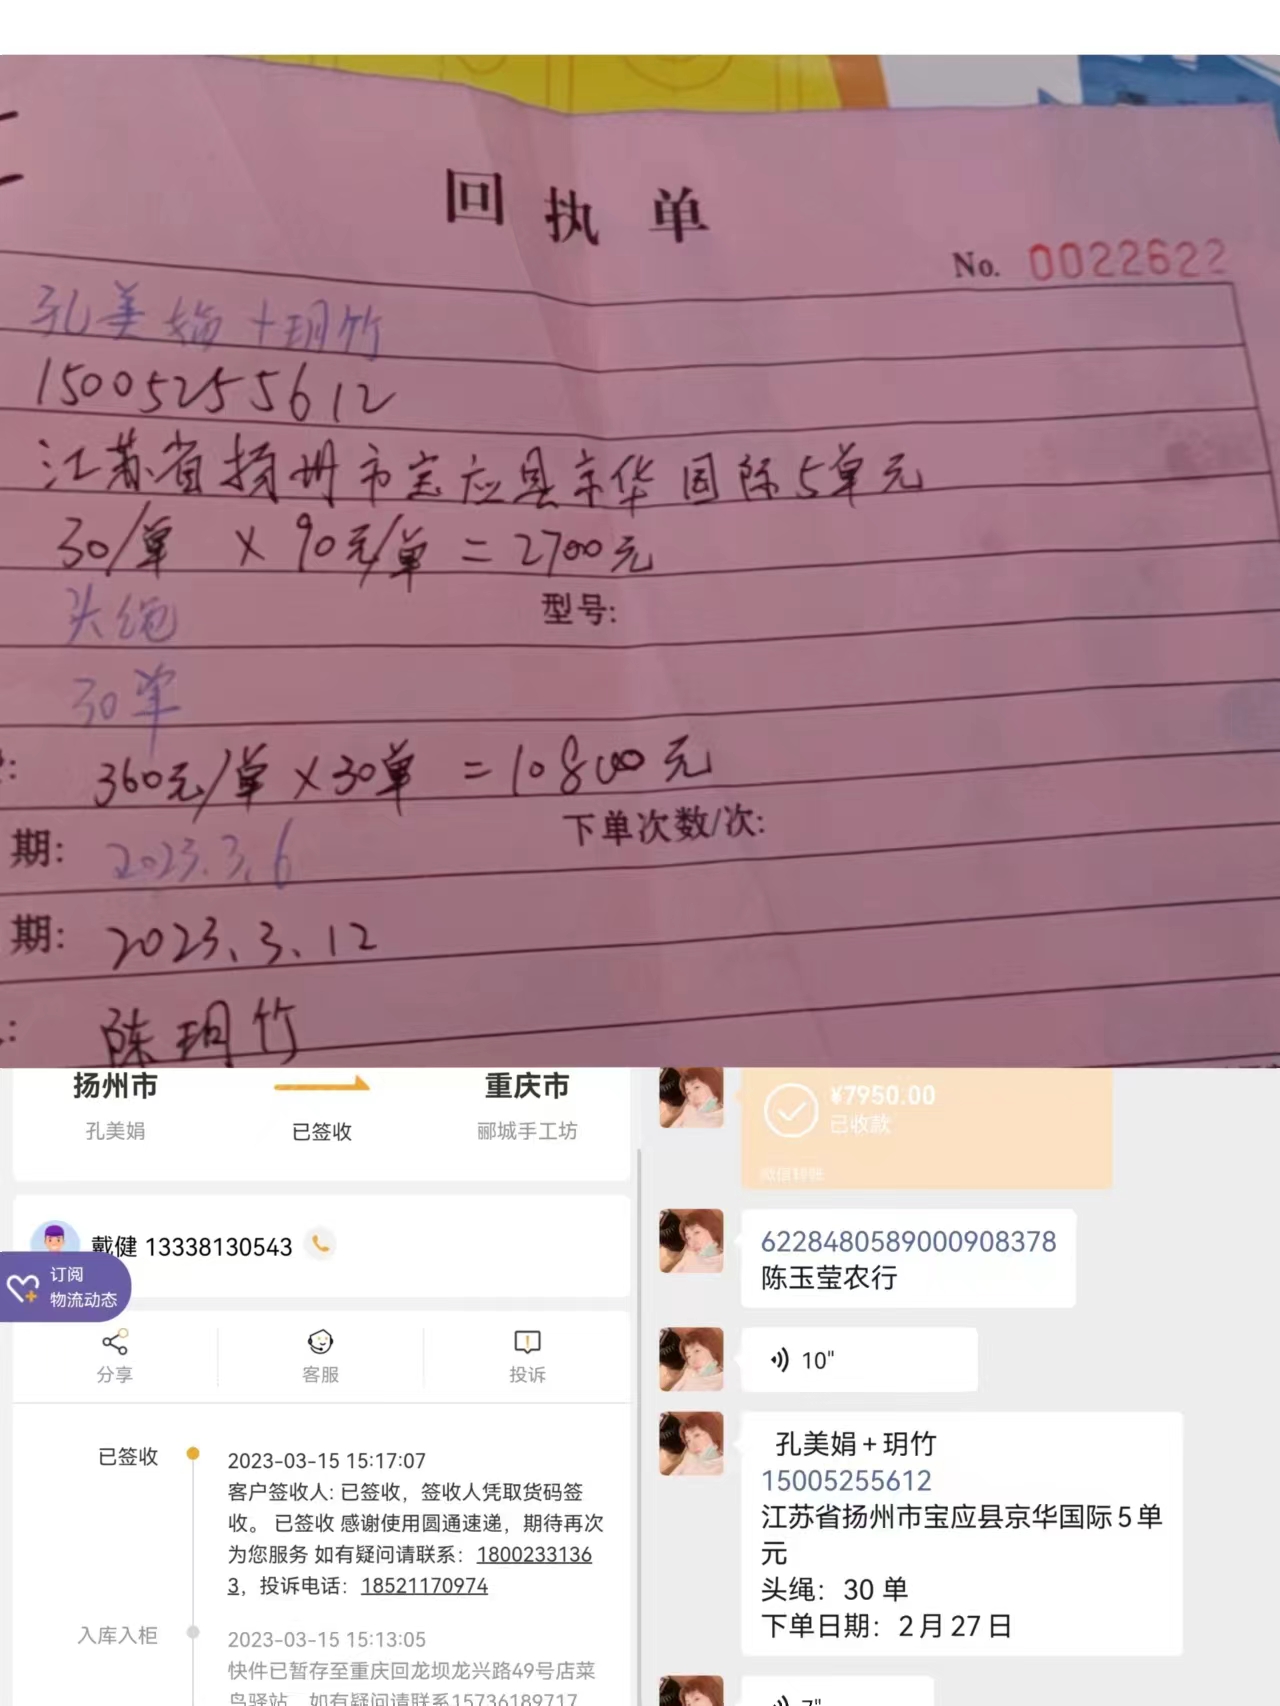 回执单
No. 0022622
孔美娟+玥竹
15005255612
江苏省扬州市宝应县京华国际5单元
30/单 × 90元/单 = 2700元
头绳
型号:
30单
360元/单×30单 = 10800元
期: 2023.3.6
下单次数/次:
期: 2023.3.12
陈玥竹
扬州市
重庆市
孔美娟
已签收
郦城手工坊
戴健 13338130543
订阅
物流动态
分享
客服
投诉
已签收
2023-03-15 15:17:07
客户签收人: 已签收，签收人凭取货码签
收。 已签收 感谢使用圆通速递，期待再次
为您服务 如有疑问请联系：1800233136
3，投诉电话：18521170974
入库入柜
2023-03-15 15:13:05
快件已暂存至重庆回龙坝龙兴路49号店菜
鸟驿站，如有疑问请联系15736189717
¥7950.00
已收款
微信转账
6228480589000908378
陈玉莹农行
10"
孔美娟+玥竹
15005255612
江苏省扬州市宝应县京华国际5单
元
头绳：30 单
下单日期：2月27日
7"